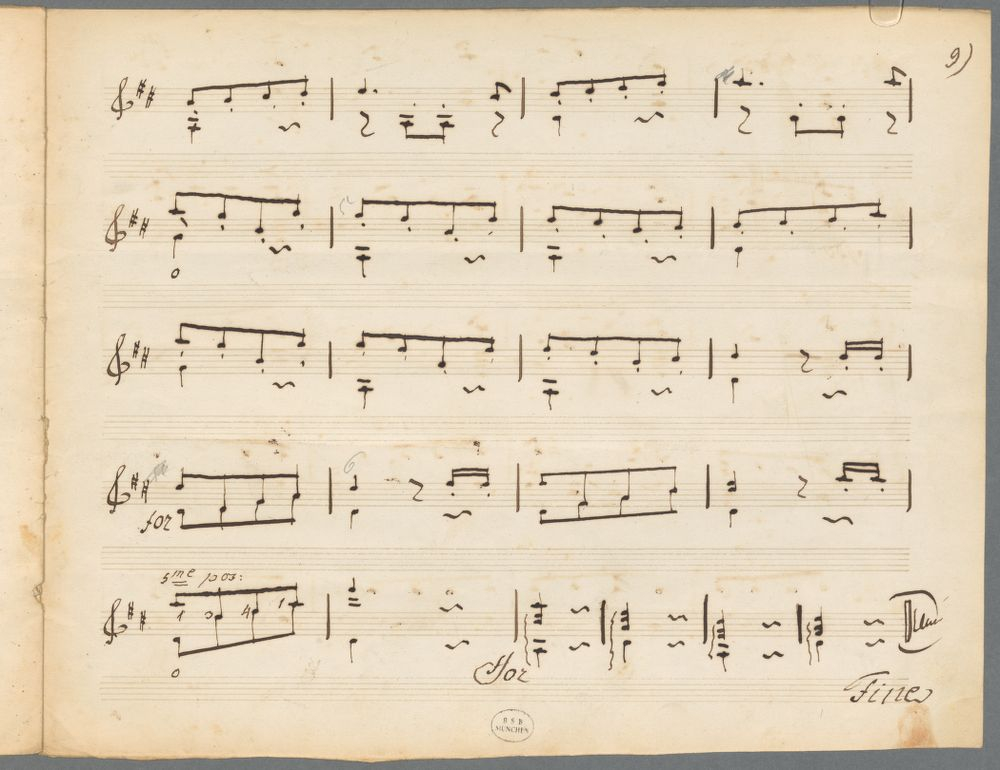 9)
52
for
6
5me pos:
1 3 4 1
0
for
Fine
B S B
MÜNCHEN